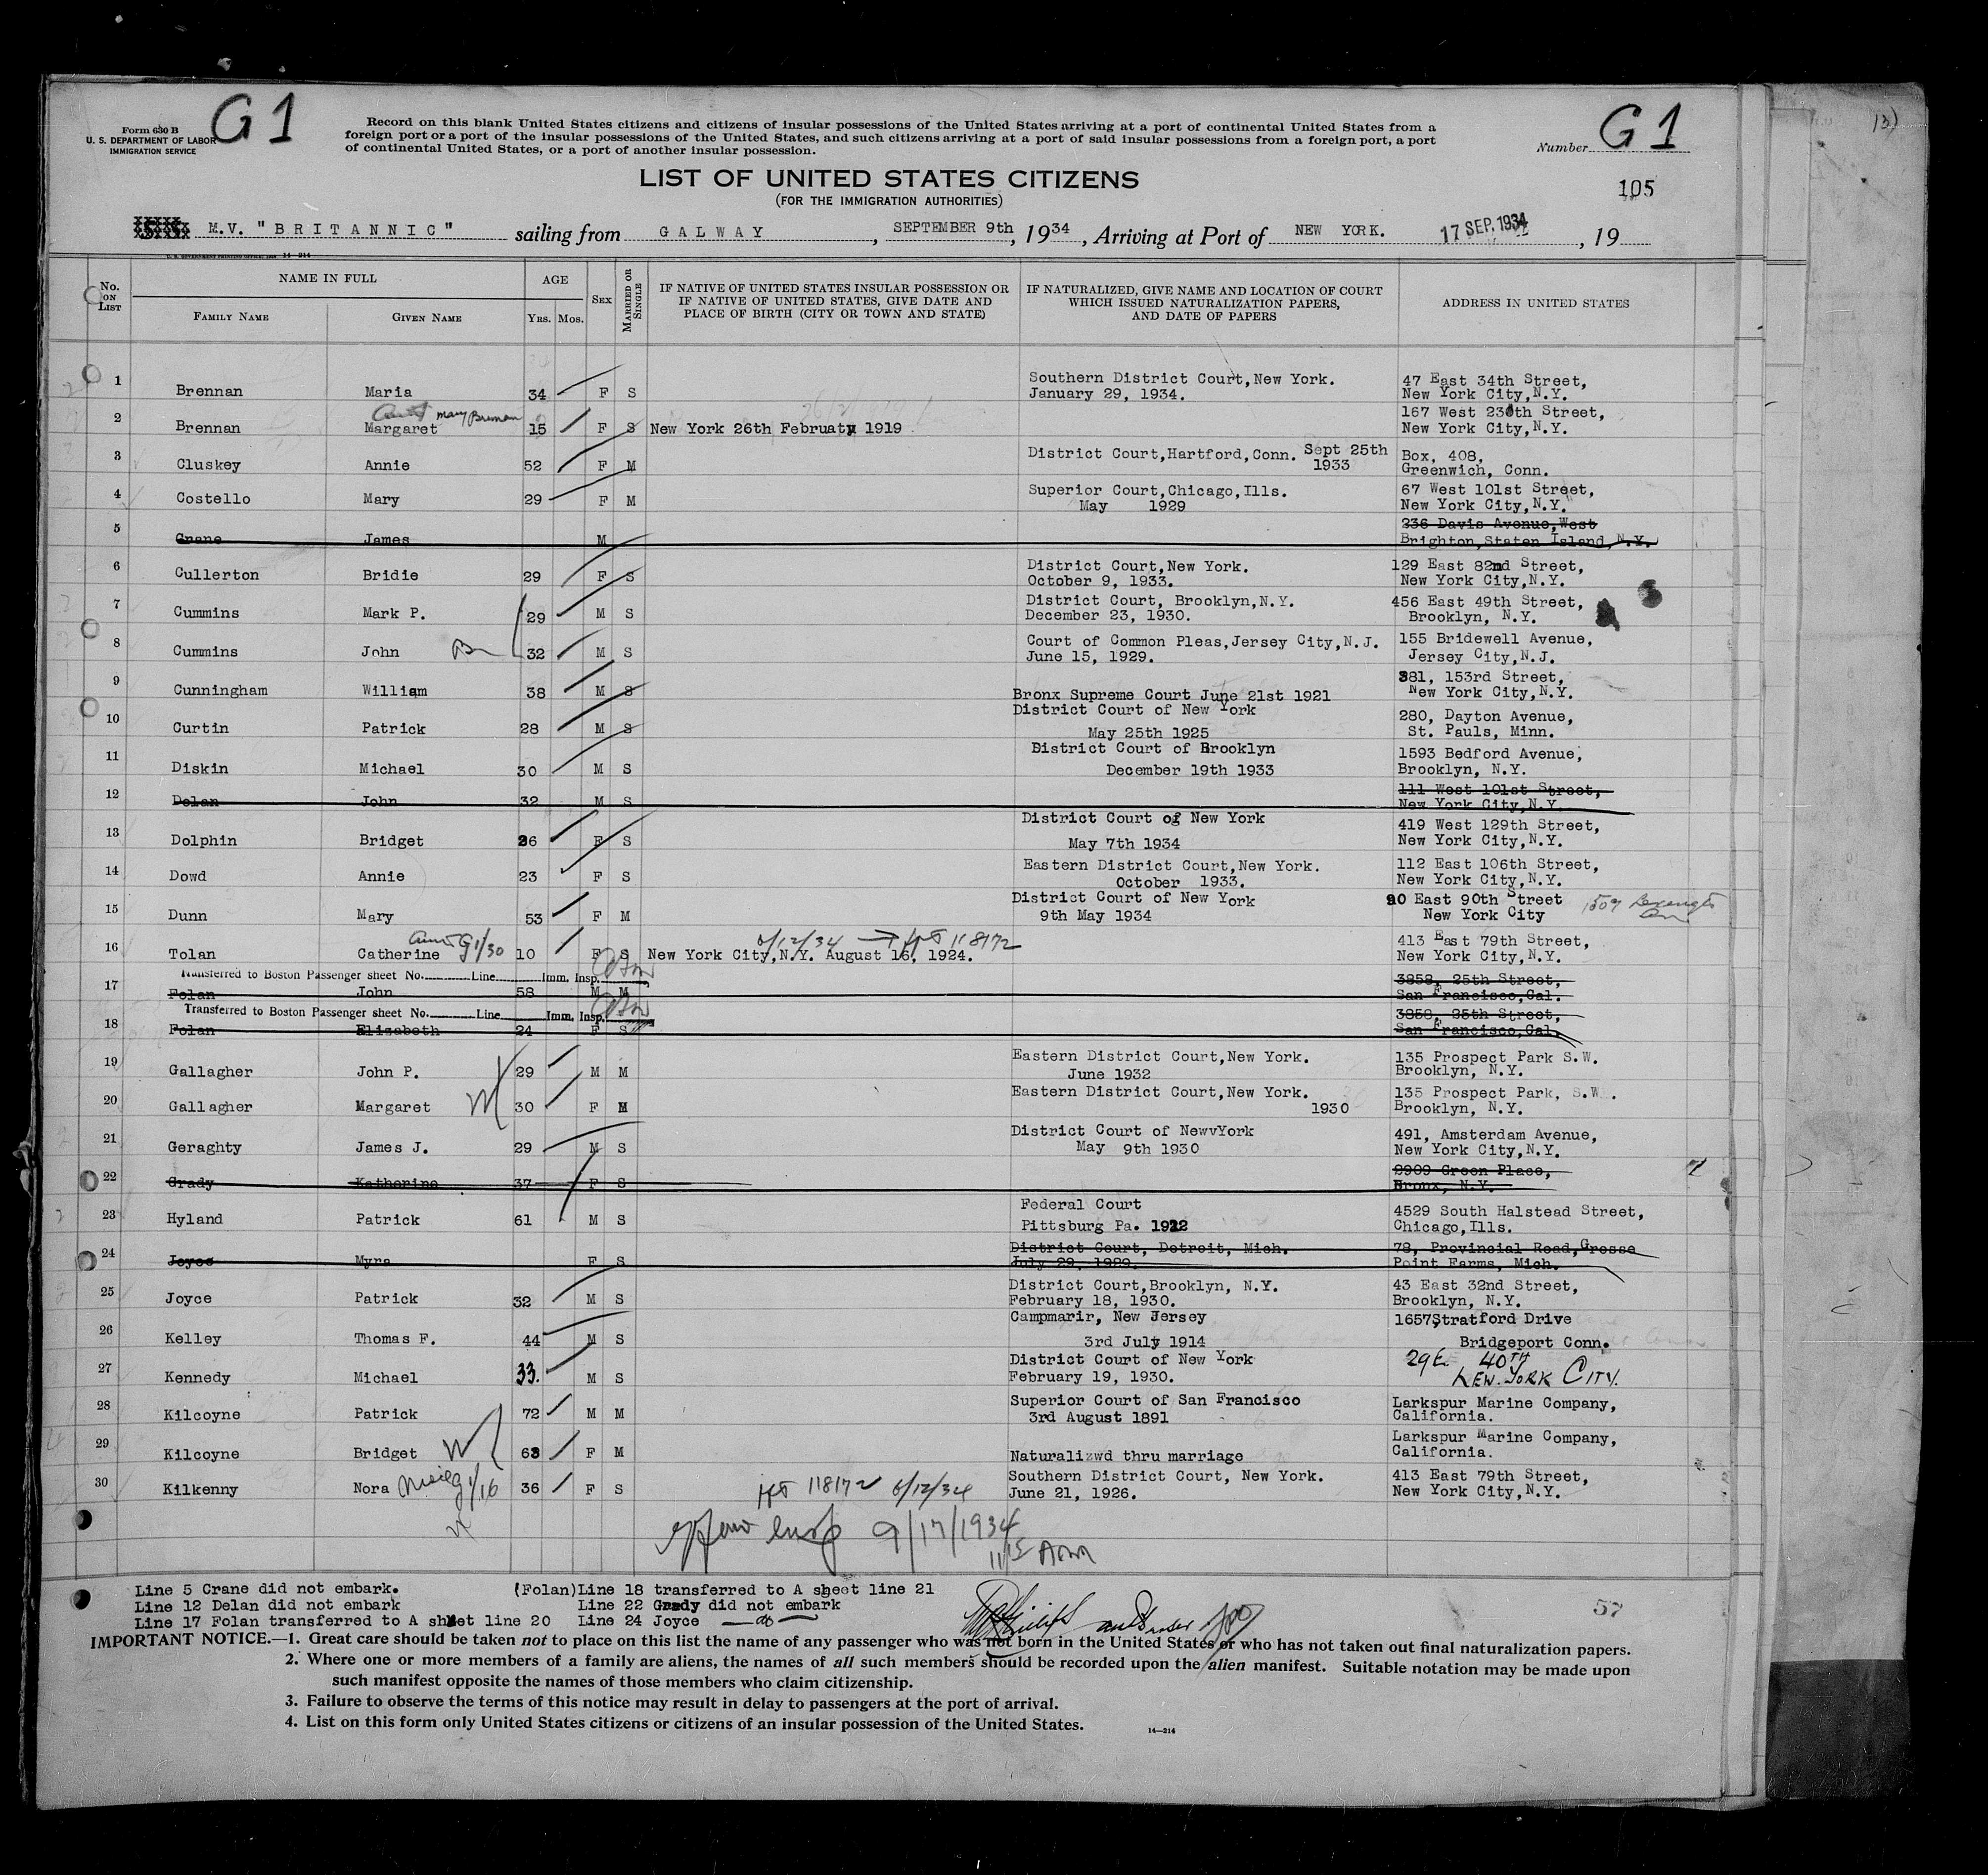 G1
Form 630 B
U. S. DEPARTMENT OF LABOR
IMMIGRATION SERVICE
Record on this blank United States citizens and citizens of insular possessions of the United States arriving at a port of continental United States from a
foreign port or a port of the insular possessions of the United States, and such citizens arriving at a port of said insular possessions from a foreign port, a port
of continental United States, or a port of another insular possession.
Number G1
LIST OF UNITED STATES CITIZENS
(FOR THE IMMIGRATION AUTHORITIES)
105
M.V. "BRITANNIC" sailing from GALWAY, SEPTEMBER 9th, 1934, Arriving at Port of NEW YORK. 17 SEP. 1934, 19
No. ON LIST
NAME IN FULL
FAMILY NAME
GIVEN NAME
AGE
YRS. MOS.
SEX
MARRIED OR SINGLE
IF NATIVE OF UNITED STATES INSULAR POSSESSION OR
IF NATIVE OF UNITED STATES, GIVE DATE AND
PLACE OF BIRTH (CITY OR TOWN AND STATE)
IF NATURALIZED, GIVE NAME AND LOCATION OF COURT
WHICH ISSUED NATURALIZATION PAPERS,
AND DATE OF PAPERS
ADDRESS IN UNITED STATES
Southern District Court, New York. 47 East 34th Street,
1 Brennan Maria 34 F S January 29, 1934. New York City, N.Y.
Aunt Mary Brennan 167 West 230th Street,
2 Brennan Margaret 15 F S New York 26th Februaty 1919 New York City, N.Y.
District Court, Hartford, Conn. Sept 25th Box, 408,
3 Cluskey Annie 52 F M 1933 Greenwich, Conn.
Superior Court, Chicago, Ills. 67 West 101st Street,
4 Costello Mary 29 F M May 1929 New York City, N.Y.
236 Davis Avenue, West
5 Crane James M Brighton, Staten Island, N.Y.
District Court, New York. 129 East 82nd Street,
6 Cullerton Bridie 29 F S October 9, 1933. New York City, N.Y.
District Court, Brooklyn, N.Y. 456 East 49th Street,
7 Cummins Mark P. 29 M S December 23, 1930. Brooklyn, N.Y.
Court of Common Pleas, Jersey City, N.J. 155 Bridewell Avenue,
8 Cummins John 32 M S June 15, 1929. Jersey City, N.J.
381, 153rd Street,
9 Cunningham William 38 M S Bronx Supreme Court June 21st 1921 New York City, N.Y.
District Court of New York 280, Dayton Avenue,
10 Curtin Patrick 28 M S May 25th 1925 St. Pauls, Minn.
District Court of Brooklyn 1593 Bedford Avenue,
11 Diskin Michael 30 M S December 19th 1933 Brooklyn, N.Y.
111 West 101st Street,
12 Dolan John 32 M S New York City, N.Y.
District Court of New York 419 West 129th Street,
13 Dolphin Bridget 26 F S May 7th 1934 New York City, N.Y.
Eastern District Court, New York. 112 East 106th Street,
14 Dowd Annie 23 F S October 1933. New York City, N.Y.
District Court of New York East 90th Street
15 Dunn Mary 53 F M 9th May 1934 New York City
Aunt G1/30 6/12/34 118172 413 East 79th Street,
16 Tolan Catherine 10 F S New York City, N.Y. August 16, 1924. New York City, N.Y.
Transferred to Boston Passenger sheet No. Line Imm. Insp. 3858, 25th Street,
17 Folan John 58 M M San Francisco, Cal.
Transferred to Boston Passenger sheet No. Line Imm. Insp. 3858, 25th Street,
18 Folan Elizabeth 24 F S San Francisco, Cal.
Eastern District Court, New York. 135 Prospect Park S.W.
19 Gallagher John P. 29 M M June 1932 Brooklyn, N.Y.
Eastern District Court, New York. 135 Prospect Park, S.W.
20 Gallagher Margaret 30 F M 1930 Brooklyn, N.Y.
District Court of NewvYork 491, Amsterdam Avenue,
21 Geraghty James J. 29 M S May 9th 1930 New York City, N.Y.
2909 Green Place,
22 Grady Katherine 37 F S Bronx, N.Y.
Federal Court 4529 South Halstead Street,
23 Hyland Patrick 61 M S Pittsburg Pa. Chicago, Ills.
District Court, Detroit, Mich. 78, Provincial Road, Grosse
24 Joyce Myra F S July 29, 1929. Point Farms, Mich.
District Court, Brooklyn, N.Y. 43 East 32nd Street,
25 Joyce Patrick 32 M S February 18, 1930. Brooklyn, N.Y.
Campmarir, New Jersey 1657 Stratford Drive
26 Kelley Thomas F. 44 M S 3rd July 1914 Bridgeport Conn.
District Court of New York 29 E. 40TH
27 Kennedy Michael 33. M S February 19, 1930. NEW. YORK CITY.
Superior Court of San Francisco Larkspur Marine Company,
28 Kilcoyne Patrick 72 M M 3rd August 1891 California.
Larkspur Marine Company,
29 Kilcoyne Bridget 63 F M Naturalizwd thru marriage California.
Southern District Court, New York. 413 East 79th Street,
30 Kilkenny Nora Niece G1/16 36 F S 118172 6/12/34 June 21, 1926. New York City, N.Y.
9/17/1934
11/15 AM
Line 5 Crane did not embark. (Folan) Line 18 transferred to A sheet line 21
Line 12 Delan did not embark Line 22 Grady did not embark
Line 17 Folan transferred to A sheet line 20 Line 24 Joyce — do —
57
IMPORTANT NOTICE.—1. Great care should be taken not to place on this list the name of any passenger who was not born in the United States or who has not taken out final naturalization papers.
2. Where one or more members of a family are aliens, the names of all such members should be recorded upon the alien manifest. Suitable notation may be made upon
such manifest opposite the names of those members who claim citizenship.
3. Failure to observe the terms of this notice may result in delay to passengers at the port of arrival.
4. List on this form only United States citizens or citizens of an insular possession of the United States.
14—214